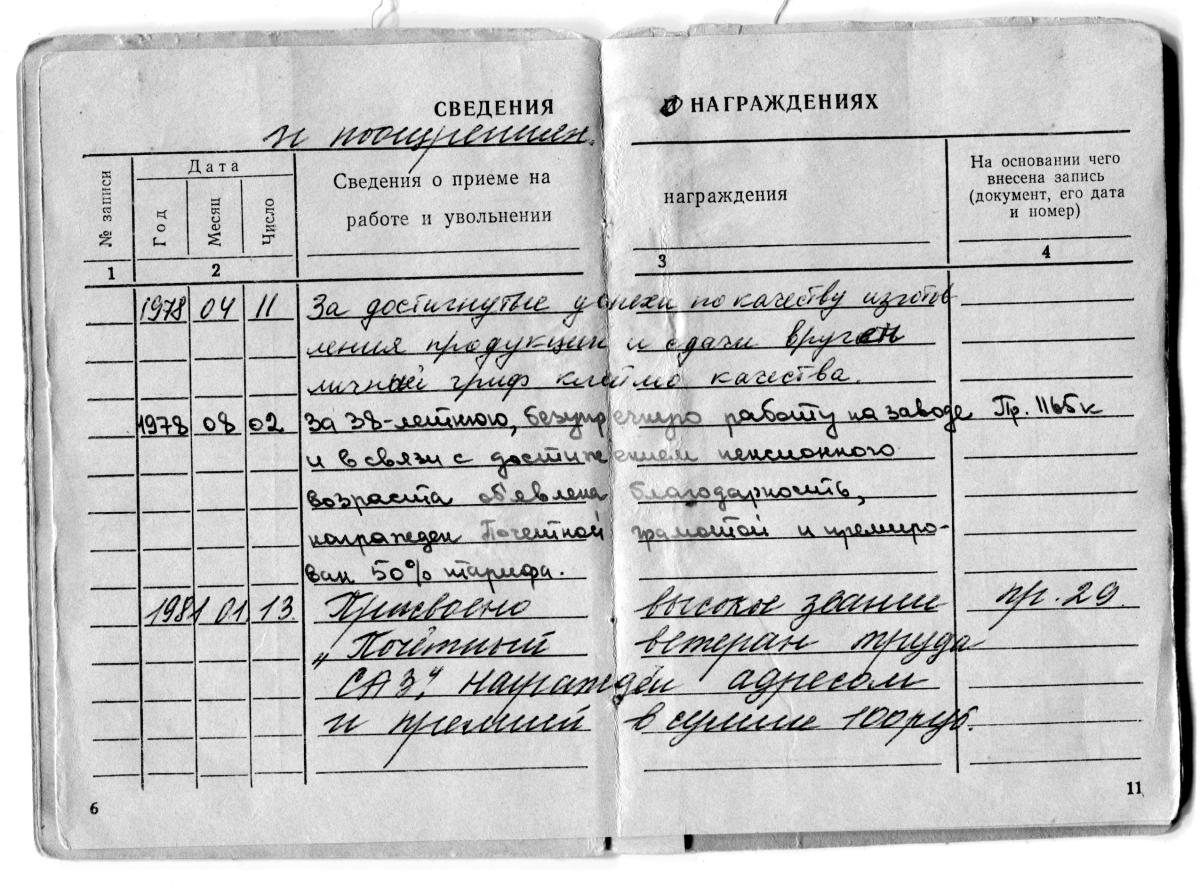 СВЕДЕНИЯ О НАГРАЖДЕНИЯХ
и поощрениях.
№ записи
Дата
Год
Месяц
Число
Сведения о приеме на
работе и увольнении
награждения
На основании чего
внесена запись
(документ, его дата
и номер)
1 2 3 4
1978 04 11 За достигнутые успехи по качеству изготов
ления продукции и сдачи вручен
личный гриф клеймо качества.
1978 08 02 За 38-летнюю, безупречную работу на заводе Пр. 1165к
и в связи с достижением пенсионного
возраста объевлена благодарность,
награжден Почетной грамотой и премиро-
ван 50% тарифа.
1981 01 13. Присвоено высокое звание пр. 29.
„Почётный ветеран труда
САЗ". награждён адресом
и премией в сумме 100 руб.
6 11